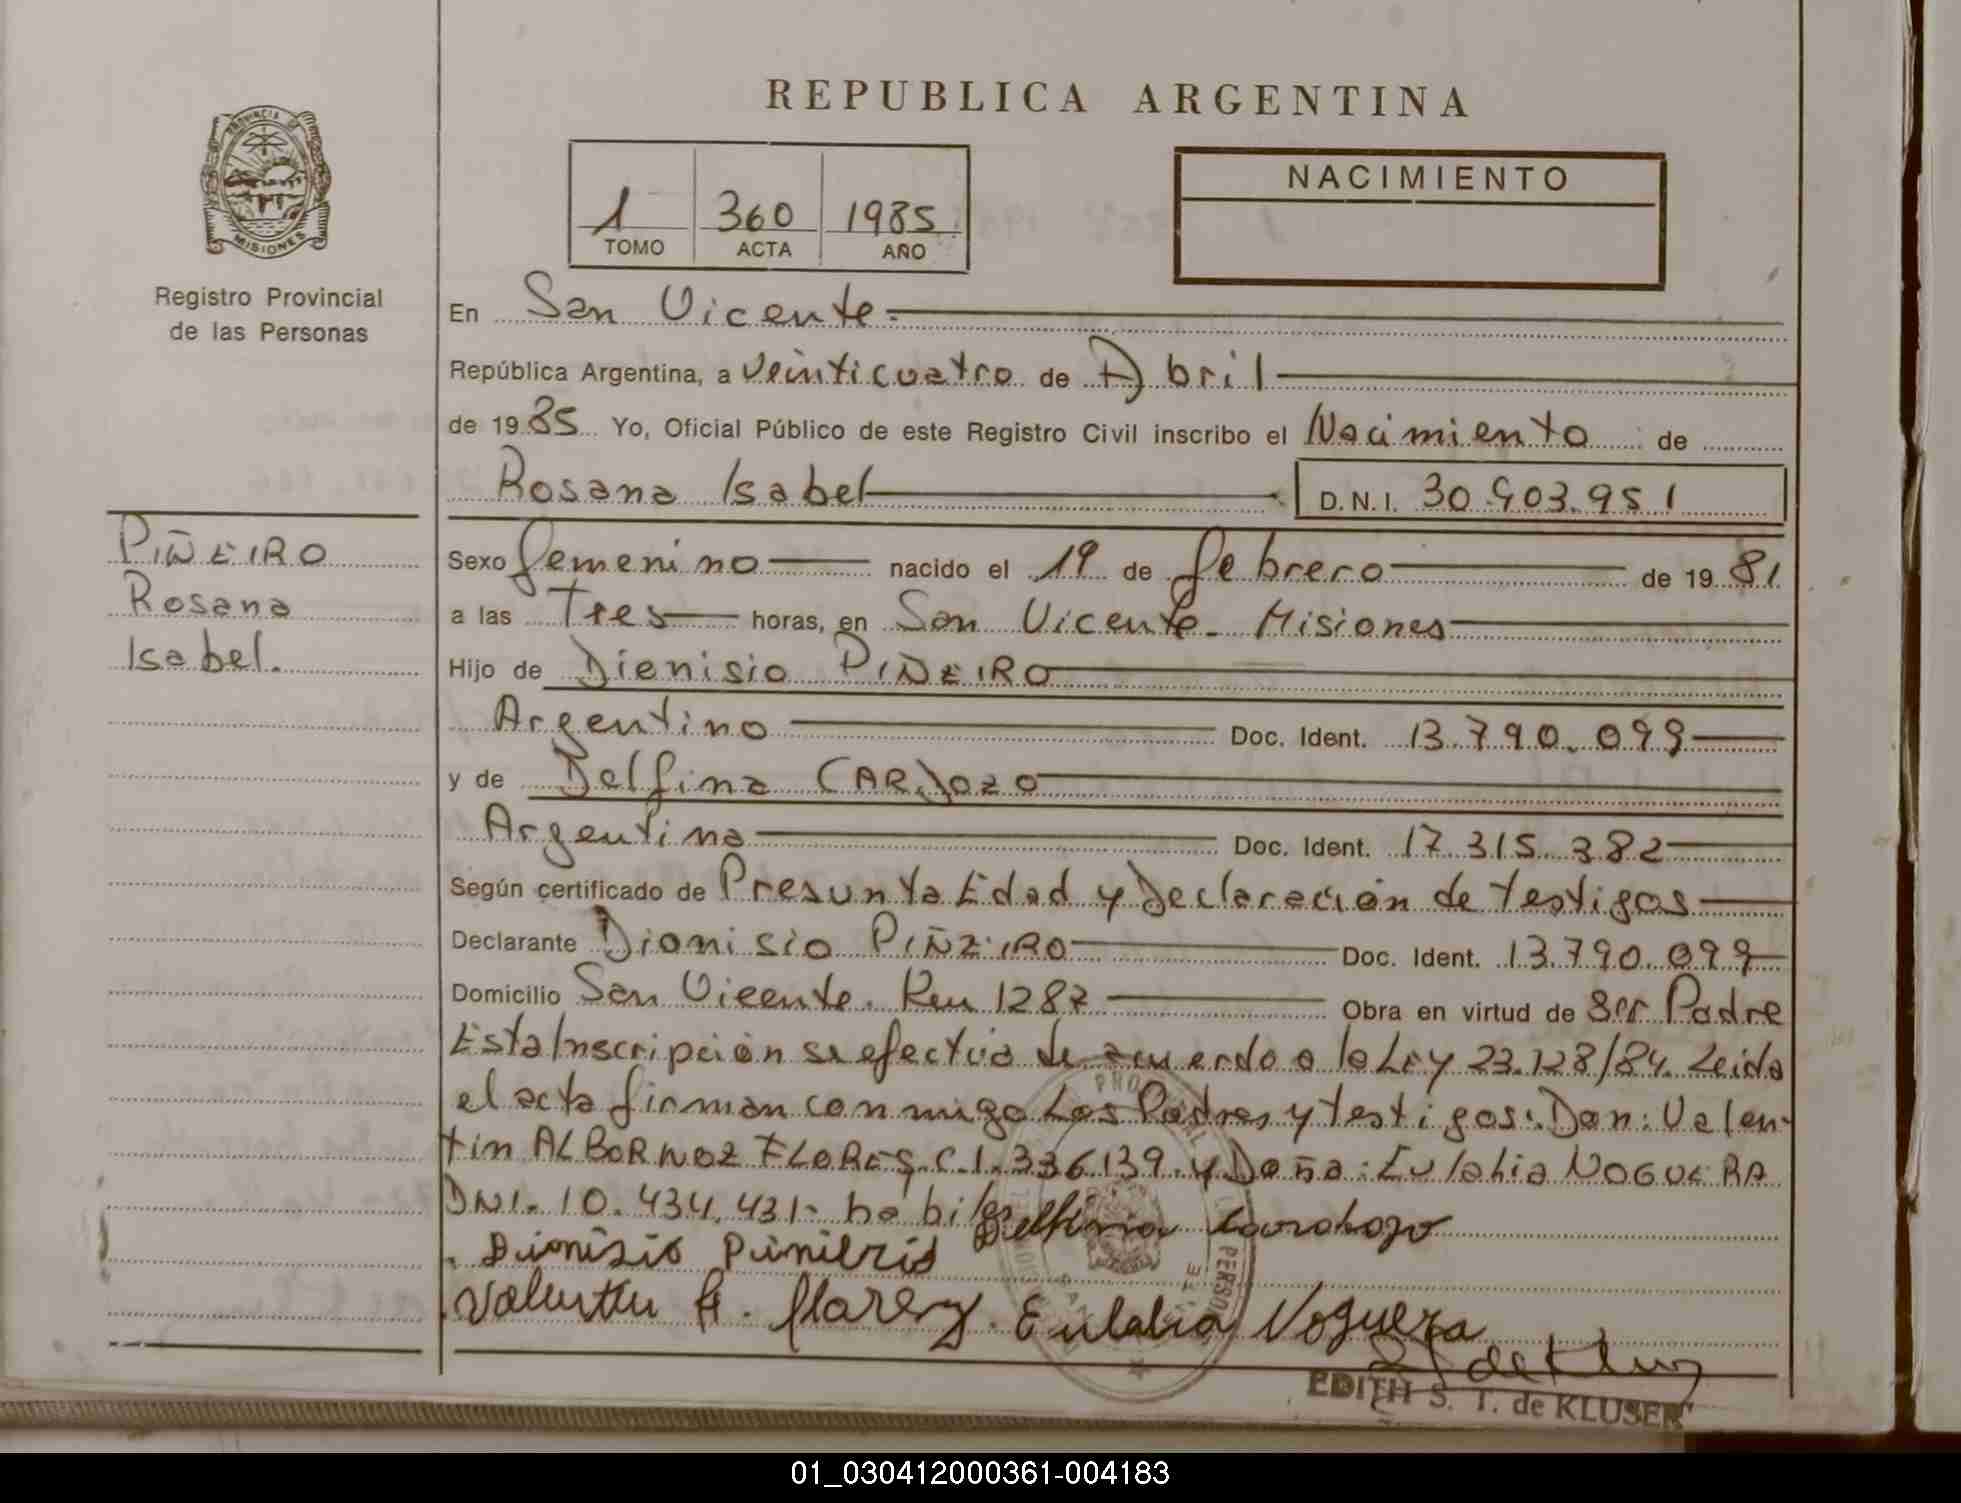 REPUBLICA ARGENTINA
PROVINCIA DE
MISIONES
Registro Provincial
de las Personas
1 360 1985
TOMO ACTA AÑO
NACIMIENTO
En San Vicente.
República Argentina, a Veinticuatro de Abril
de 1985 Yo, Oficial Público de este Registro Civil inscribo el Nacimiento de
Rosana Isabel D.N.I. 30.903.951
PIÑEIRO
Rosana
Isabel.
Sexo femenino nacido el 19 de febrero de 1981
a las Tres horas, en San Vicente - Misiones
Hijo de Dionisio PIÑEIRO
Argentino Doc. Ident. 13.790.099
y de Delfina CARDOZO
Argentina Doc. Ident. 17.315.382
Según certificado de Presunta Edad y Declaración de testigos
Declarante Dionisio PIÑEIRO Doc. Ident. 13.790.099
Domicilio San Vicente. Km 1287 Obra en virtud de Ser Padre
Esta Inscripción se efectúa de acuerdo a la Ley 23.128/84. Leida
el acta firman conmigo Los Padres y testigos: Don: Valen-
tin ALBORNOZ FLORES. C.I. 336.139. y Doña: Eulalia NOGUERA
DNI. 10.434.431- habiles
Delfina Carodozo
Dionisio Piñeiro
Valentin A. flores. Eulalia Noguera
EDITH S. T. de KLUSER
01_030412000361-004183